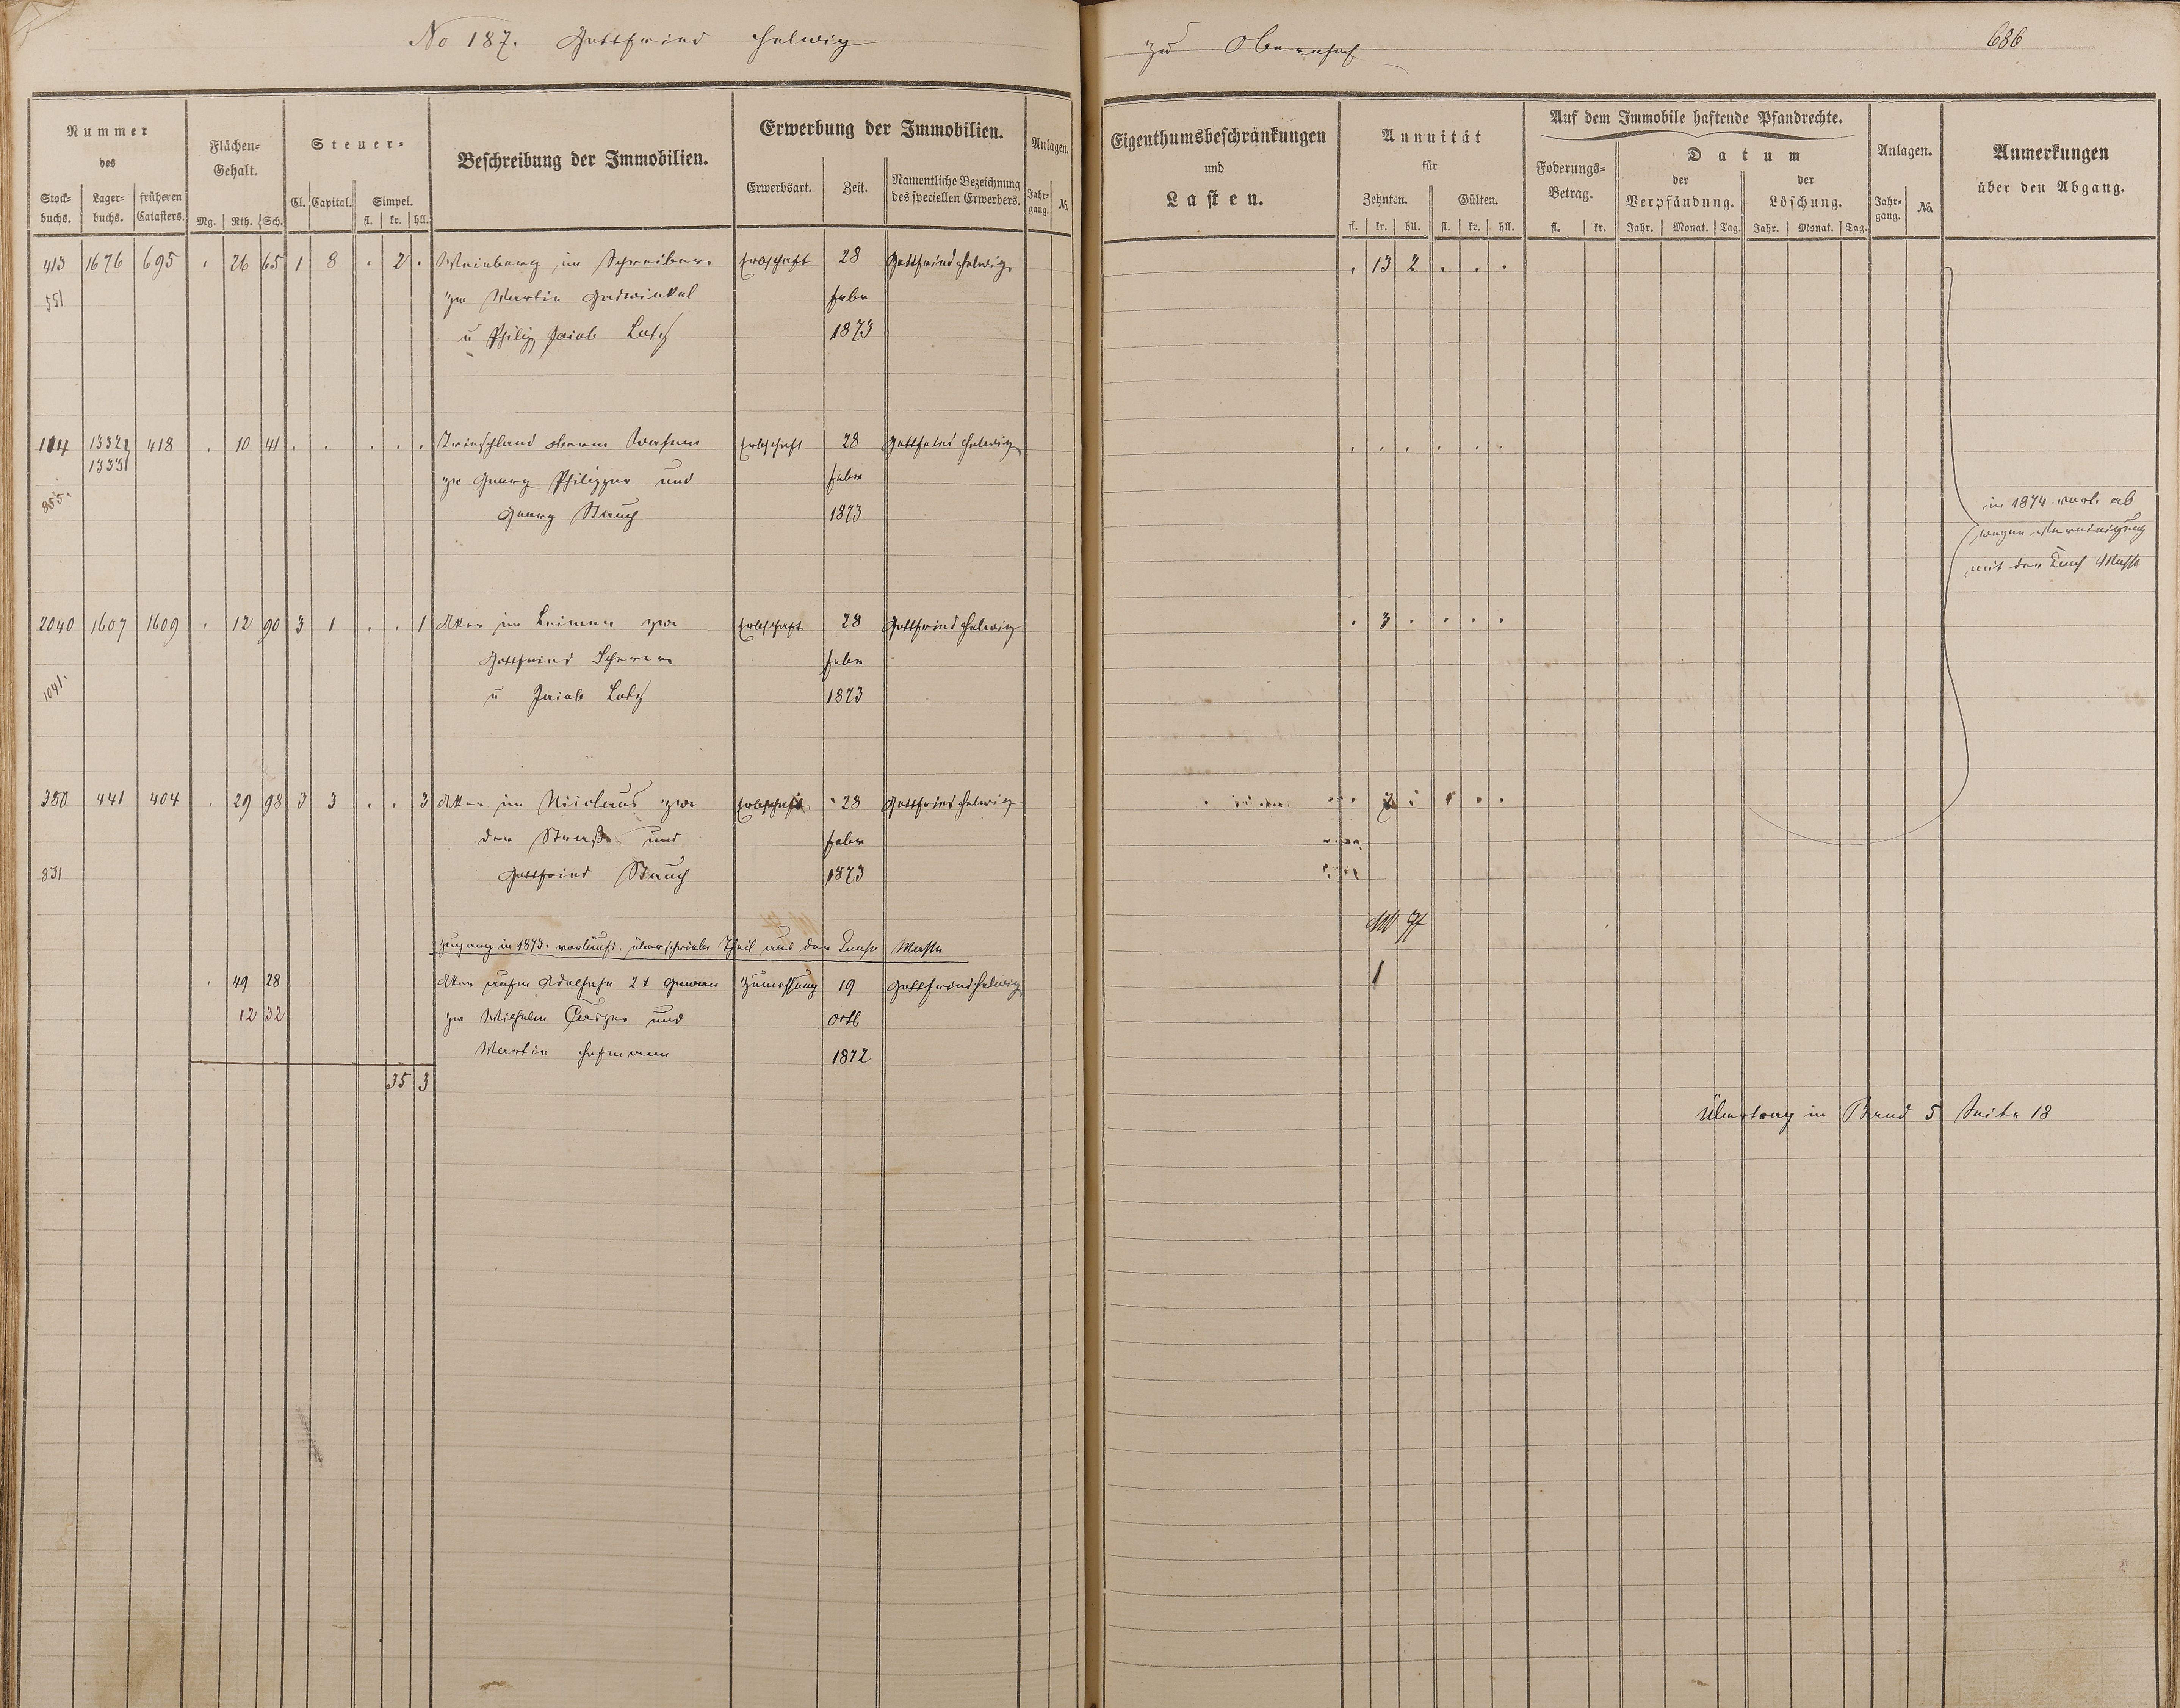 No 187. Gottfried Helwig
zu Obernhof
686
Nummer
des
Stock-
buchs.
Lager-
buchs.
früheren
Catasters.
Flächen-
Gehalt.
Mg. Rth. Sch.
Steuer-
Cl. Capital. Simpel.
fl. kr. hll.
Beschreibung der Immobilien.
Erwerbung der Immobilien.
Erwerbsart. Zeit. Namentliche Bezeichnung
des speciellen Erwerbers.
Anlagen.
Jahr-
gang. No.
Eigenthumsbeschränkungen
und
Lasten.
Annuität
für
Zehnten. Gülten.
fl. kr. hll. fl. kr. hll.
Auf dem Immobile haftende Pfandrechte.
Foderungs-
Betrag.
fl. kr.
Datum
der
Verpfändung.
Jahr. Monat. Tag.
der
Löschung.
Jahr. Monat. Tag.
Anlagen.
Jahr-
gang. No.
Anmerkungen
über den Abgang.
413 1676 695 . 26 65 1 8 . 2 . Weinberg im Schreiber Erbschaft 28 Gottfried Helwig . 13 2 . . .
551 zw Martin Febr
u Philipp Jacob Lotz 1873
114 1332 418 . 10 41 . . . . . Trieschland oberm Erbschaft 28 Gottfried Helwig . . . . . .
1333
zw Georg Philippus und Febr
855 Georg Stauch 1873
in 1874 ab
wegen Vereinigung
mit der Masse
2040 1607 1609 . 12 90 3 1 . . 1 Acker im Leimen zw Erbschaft 28 Gottfried Helwig . 3 . . . .
Gottfried Scherer Febr
1041. u Jacob Lotz 1873
350 441 404 . 29 98 3 3 . . 3 Acker im Nicolaus zw Erbschaft 28 Gottfried Helwig . 7 . . . .
der Straße und Febr
831 Gottfried Stauch 1873
Zugang in 1873. Theil aus der Masse
. 49 28 Acker 2t Gewann Zumessung 19 Gottfried Helwig 1
12 32 zw Wilhelm und Octb
Martin Hofmann 1872
35 3
Übertrag in Band 5 Seite 18